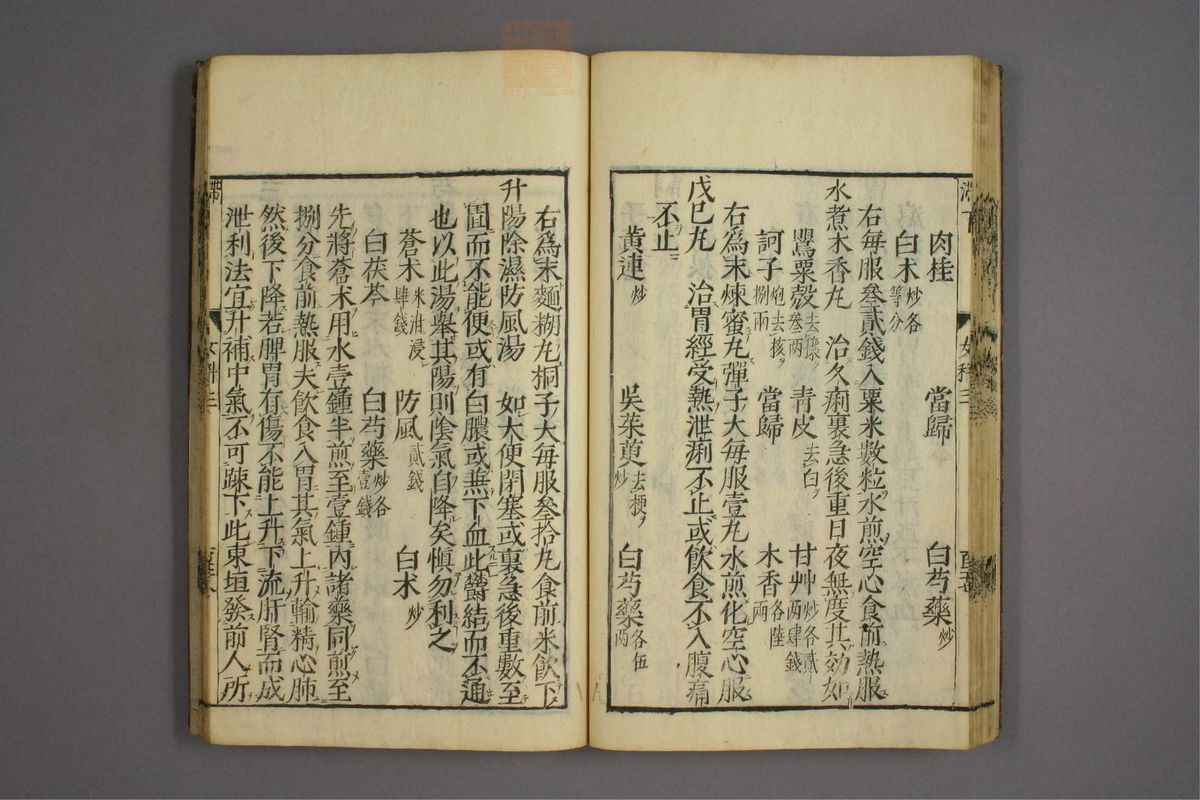 肉桂　當歸　白芍藥炒
白木炒各等分
右每服叄貳錢入粟米數粒水煎空心食前熱服
水煮木香丸　治久痢裏急後重日夜無度其効如
罌粟殼去穰叄兩　青皮去白　甘艸炒各貳兩肆錢
訶子炮去核捌兩　當歸　木香各陸兩
右爲末煉蜜丸彈子大每服壹丸水煎化空心服
戊巳丸　治胃經受熱泄痢不止或飲食不入腹痛
不止
黃連炒　吳茱萸去梗炒　白芍藥各伍兩
右爲末麵糊丸桐子大每服叄拾丸食前米飲下
升陽除濕防風湯　如大便閉塞或裏急後重數至
圊而不能便或有白膿或無下血此欝結而不通
也以此湯舉其陽則陰氣自降矣愼勿利之
蒼木米泔浸肆錢　防風貳錢　白术炒
白茯苓　白芍藥炒各壹錢
先將蒼术用水壹鍾半煎至壹鍾內諸藥同煎至
捌分食前熱服夫飲食入胃其氣上升輸精心肺
然後下降若脾胃有傷不能上升下流肝腎而成
泄利法宜升補中氣不可踈下此東垣發前人所
女科三